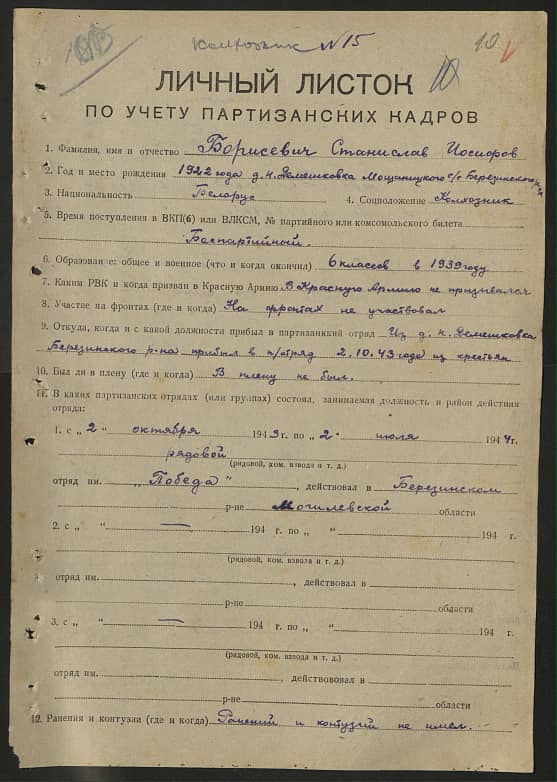 колхозник №15
10
ЛИЧНЫЙ ЛИСТОК
ПО УЧЕТУ ПАРТИЗАНСКИХ КАДРОВ
1. Фамилия, имя и отчество Борисевич Станислав Иосифов
2. Год и место рождения 1922 года д. н. Демешковка Мощаницкого с/с Березинского р-на
3. Национальность Беларус 4. Соцположение Колхозник
5. Время поступления в ВКП(б) или ВЛКСМ, № партийного или комсомольского билета
Беспартийный.
6. Образование: общее и военное (что и когда окончил) 6 классов в 1939 году
7. Каким РВК и когда призван в Красную Армию В Красную Армию не призывался
8. Участие на фронтах (где и когда) На фронтах не участвовал
9. Откуда, когда и с какой должности прибыл в партизанккий отряд Из д. н. Демешковка
Березинского р-на прибыл в п/отряд 2.10.43 года из крестьян
10. Был ли в плену (где и когда) В плену не был.
11. В каких партизанских отрядах (или группах) состоял, занимаемая должность и район действия
отряда:
1. с „ 2 “ октября 1943 г. по „ 2 “ июля 1944 г.
рядовой
(рядовой, ком. взвода и т. д.)
отряд им. „Победа“, действовал в Березинском
р-не Могилевской области
2. с „ “ — 194 г. по „ “ 194 г.
(рядовой, ком. взвода и т. д.)
отряд им. , действовал в
р-не области
3. с „ “ — 194 г. по „ “ 194 г.
(рядовой, ком. взвода и т. д.)
отряд им. , действововал в
р-не области
12. Ранения и контузии (где и когда) Ранений и контузий не имел.